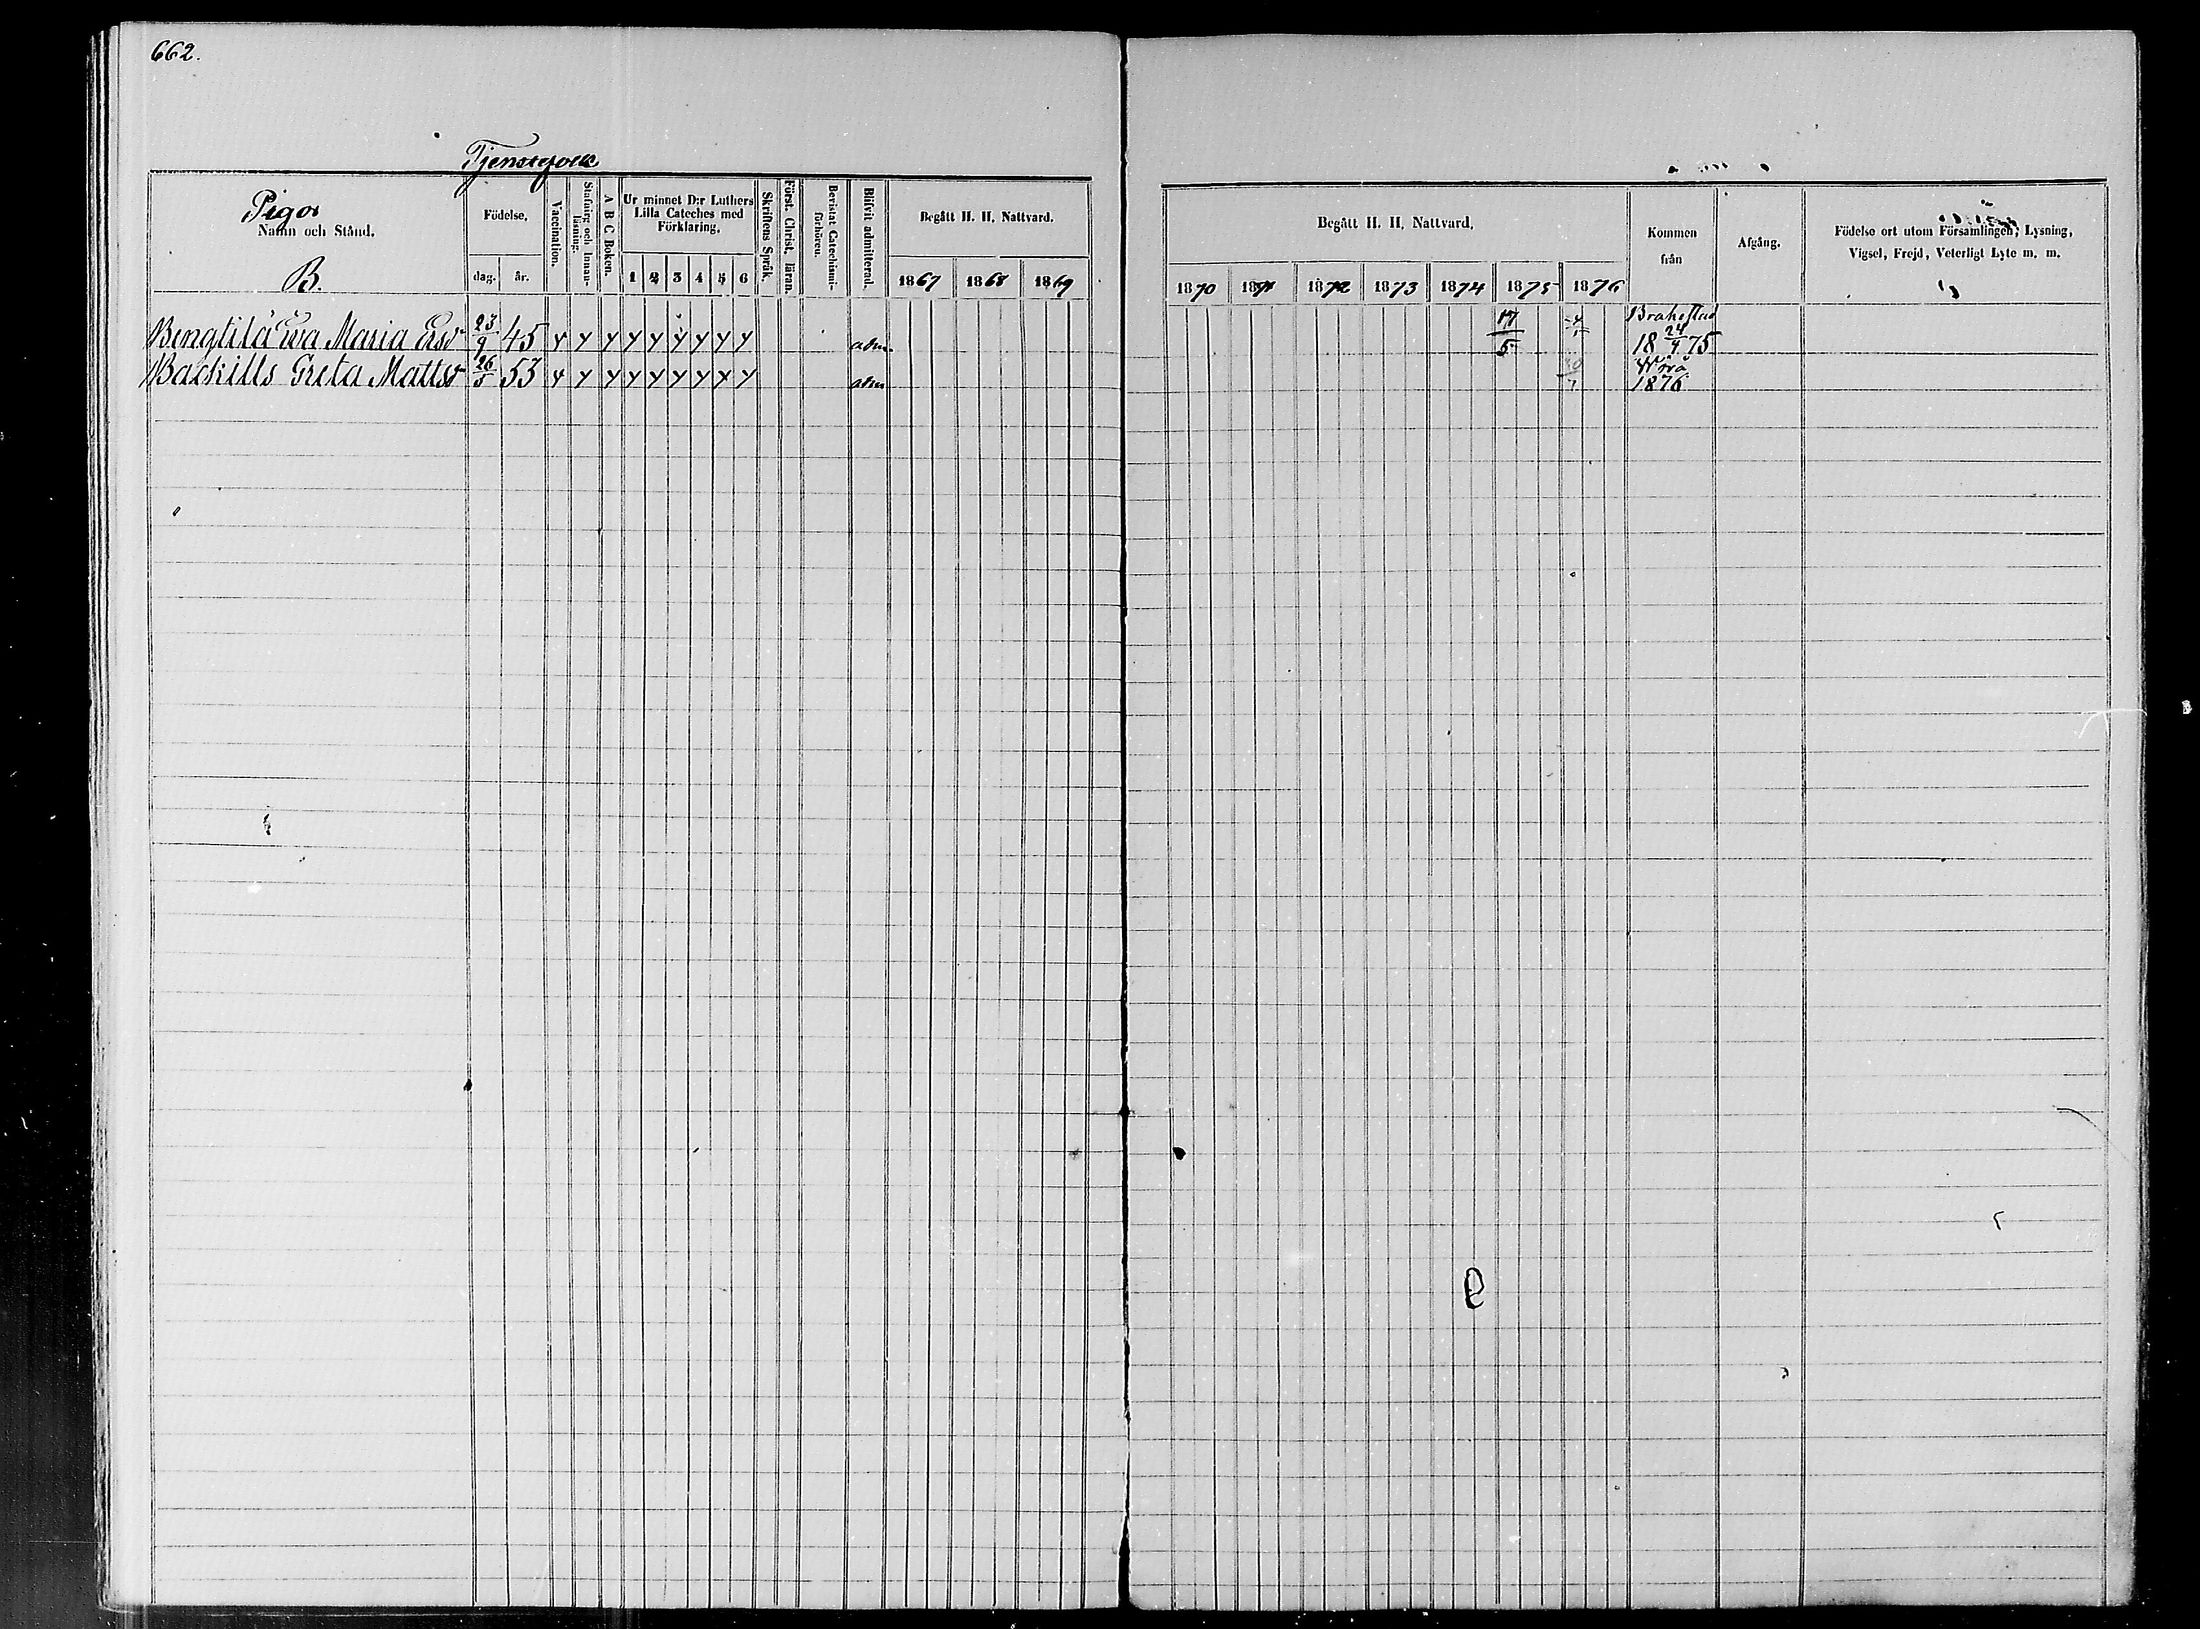 662.
Tjenstefolk
Pigor
Namn och Stånd.
B.
Födelse,
dag. år.
Vaccination.
Stafning och innan-
läsning.
A B C Boken.
Ur minnet D:r Luthers
Lilla Cateches med
Förklaring.
1 2 3 4 5 6
Skriftens Språk.
Först. Christ. läran.
Bevistat Catechismi-
förhören.
Blifvit admitterad.
Begått H. H. Nattvard.
1867 1868 1869
Begått H. H. Nattvard.
1870 1871 1872 1873 1874 1875 1876
Kommen
från
Afgång.
Födelse ort utom Församlingen, Lysning,
Vigsel, Frejd, Veterligt Lyte m. m.
Bengtilä Eva Maria Ersdr 23/9 45 adm. 17/5 Brahestad
18 24/4 75
Backills Greta Mattsdr 26/5 53 adm
1876